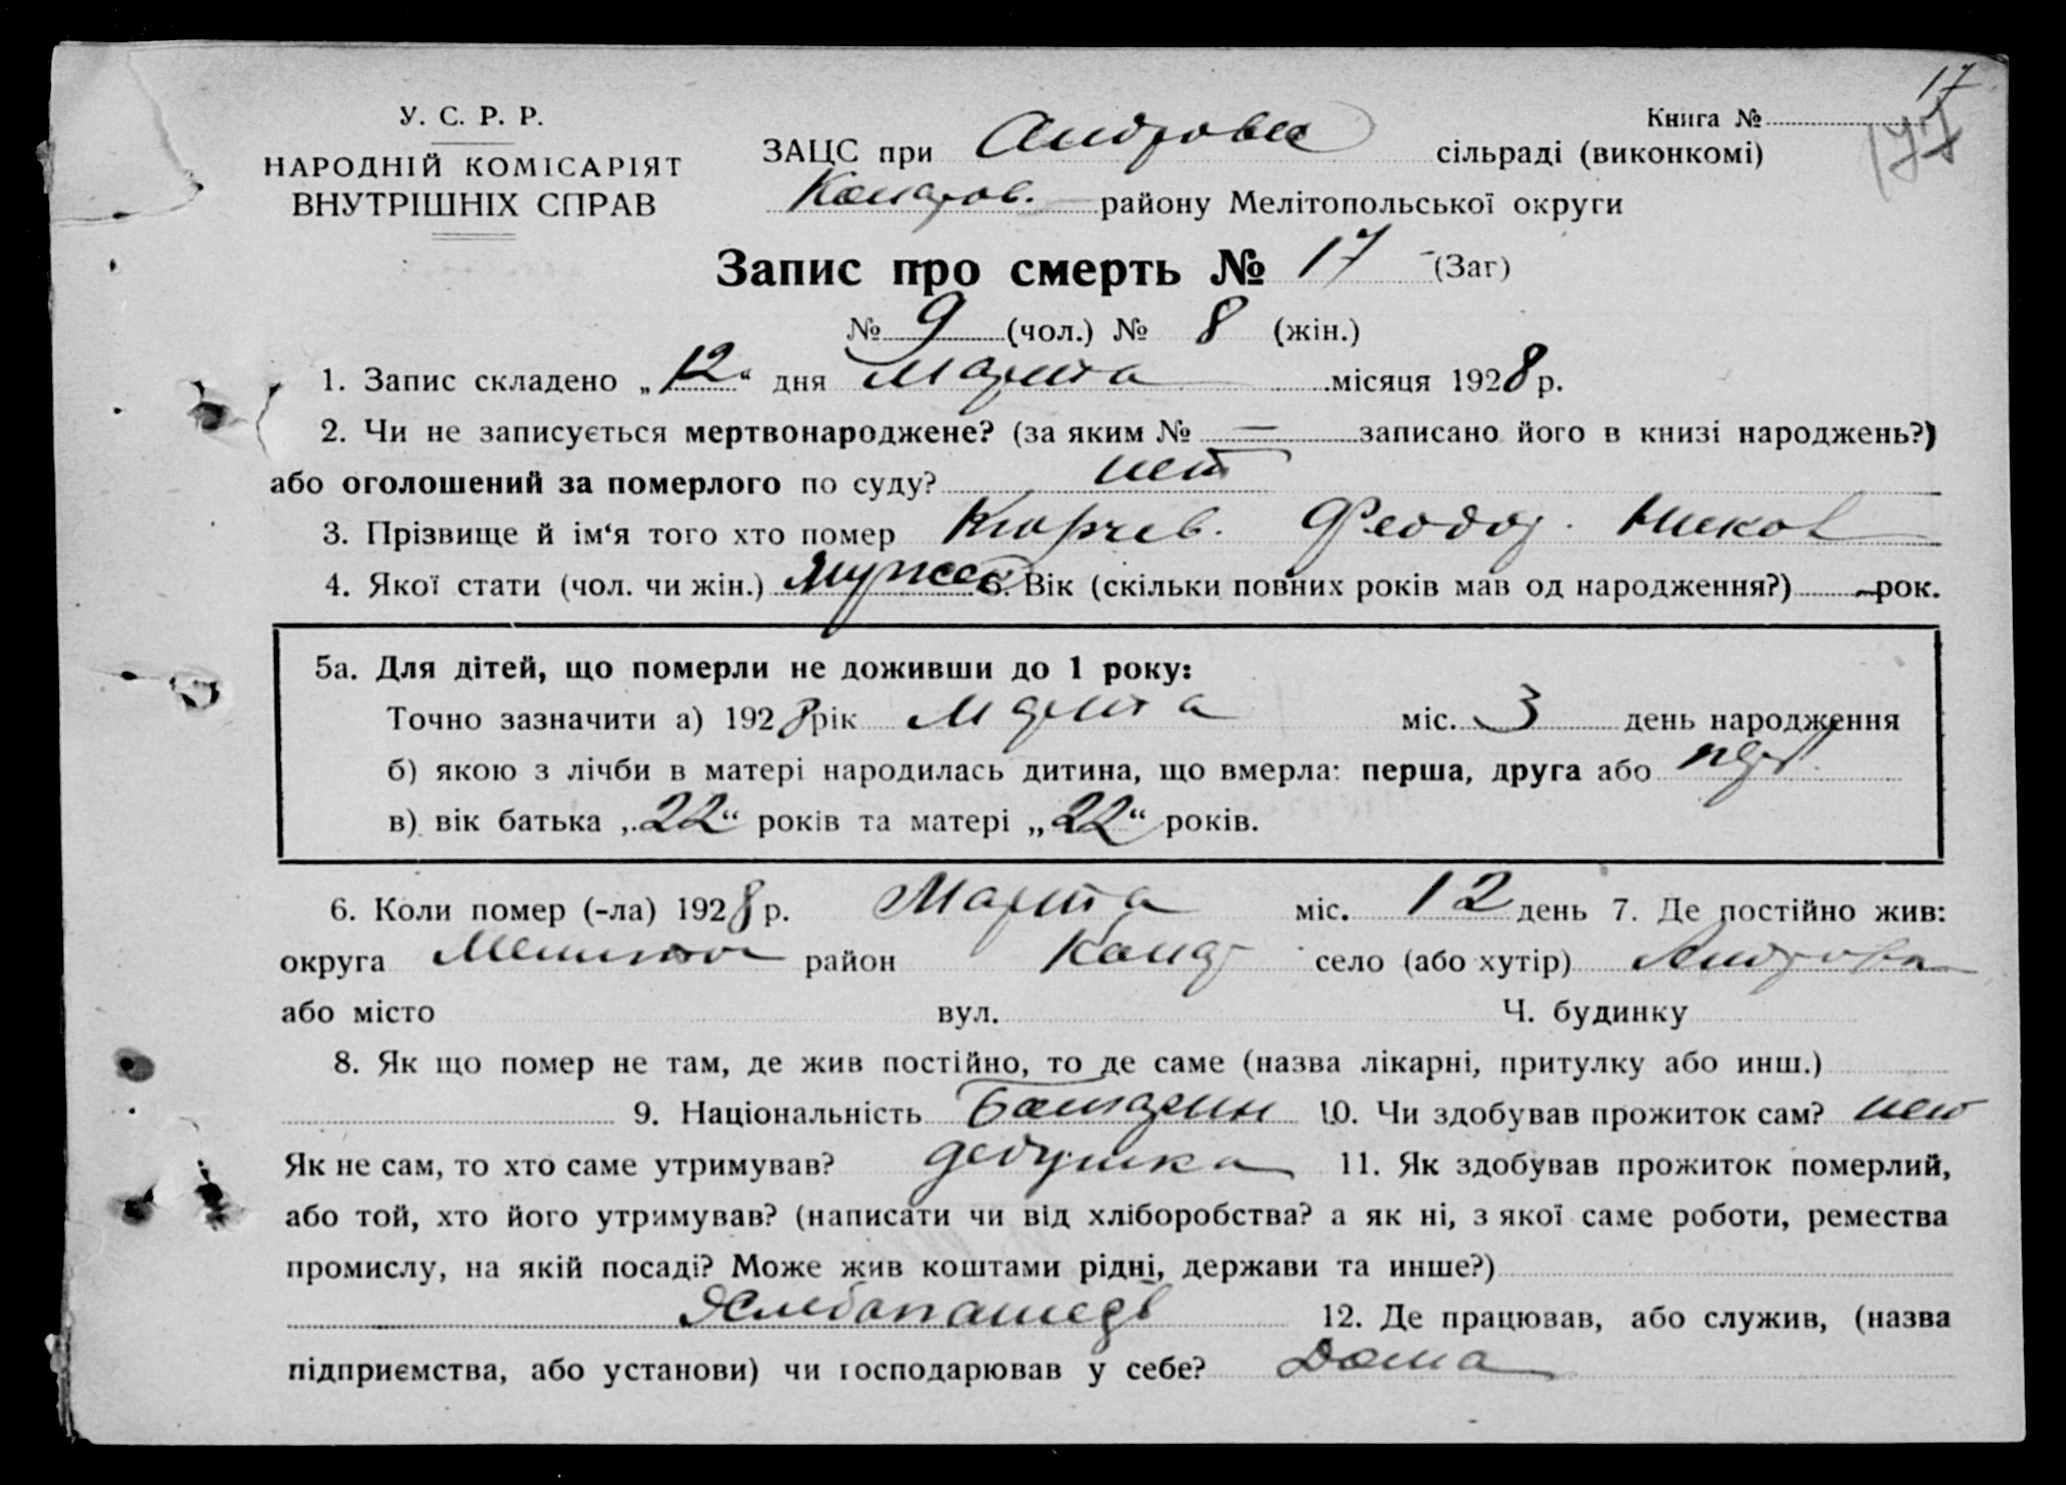 17
177
У. С. Р. Р.
НАРОДНІЙ КОМІСАРІЯТ
ВНУТРІШНІХ СПРАВ
Книга №
ЗАЦС при Андровке сільраді (виконкомі)
район​у Мелітопольської округи
Запис про смерть № 17 (Заг)
№ 9 (чол.) № 8 (жін.)
1. Запис складено „12“ дня Марта місяця 1928 р.
2. Чи не записується мертвонароджене? (за яким № — записано його в книзі народжень?)
або оголошений за померлого по суду? нет
3. Прізвище й ім‘я того хто помер Кюрчев. Феодор. Никол
4. Якої стати (чол. чи жін.) Мужск 6. Вік (скільки повних років мав од народження?) — рок.
5а. Для дітей, що померли не доживши до 1 року:
Точно зазначити а) 1928 рік Марта міс. 3 день народження
б) якою з лічби в матері народилась дитина, що вмерла: перша, друга або
в) вік батька „22“ років та матері „22“ років.
6. Коли помер (-ла) 1928 р. Марта міс. 12 день 7. Де постійно жив:
округа Мелитоп район село (або хутір) Андровка
або місто вул. Ч. будинку
8. Як що помер не там, де жив постійно, то де саме (назва лікарні, притулку або инш.)
9. Національність Болгарин 10. Чи здобував прожиток сам? нет
Як не сам, то хто саме утримував? дедушка 11. Як здобував прожиток померлий,
або той, хто його утримував? (написати чи від хліборобства? а як ні, з якої саме роботи, ремества
промислу, на якій посаді? Може жив коштами рідні, держави та инше?)
Хлебопашедв 12. Де працював, або служив, (назва
підприємства, або установи) чи господарював у себе? Дома